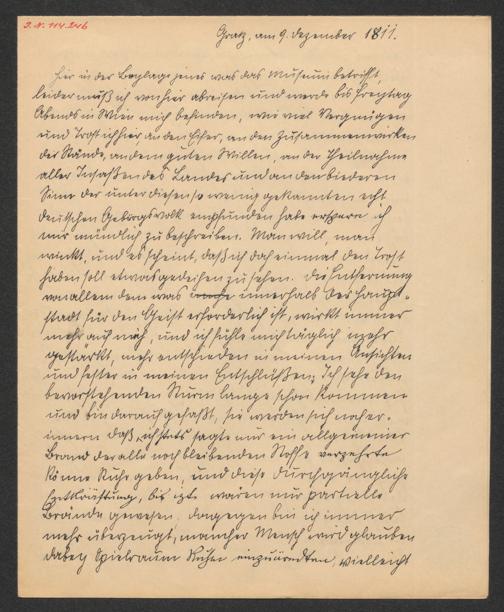 J.N. 114.246
Graz, am 9. Dezember 1811.
Hier in der Beylage jenes was das Museum betrifft,
leider muß ich von hier abreisen und werde bis Freytag
Abends in Wien mich befinden, wie viel Vergnügen
und Trost ich hier, an den Eifer, an den Zusammenwirken
der Stände, an dem guten Willen, an der Theilnahme
aller Insaßen des Landes und an den biederen
Sinn der unter diesen so wenig gekannten echt
deutschen Gebürgsvolk empfunden habe erspare ich
mir mündlich zu beschreiben. Man will, man
wirkt, und es scheint, daß ich doch einmal den Trost
haben soll etwas gedeihen zu sehen. Die Entfernung
von allem dem was innerhalb der Haupt-
stadt für den Geist erforderlich ist, wirkt immer
mehr auf mich, und ich fühle mich täglich mehr
gestärkt, mehr entschieden in meinen Ansichten
und fester in meinen Entschlüßen; Ich sehe den
bevorstehenden Sturm lange schon kommen
und bin darauf gefaßt, sie werden sich noch er-
innern daß ich stets sagte nur ein allgemeiner
Brand der alle noch bleibenden Stoffe verzehrte
könne Ruhe geben, und diese durchgängliche
Entkräftung, bis izt waren nur partielle
Brände gewesen. dagegen bin ich immer
mehr überzeugt, mancher Mensch wird glauben
dabey Spielraum Ruhm einzuärndten, vielleicht